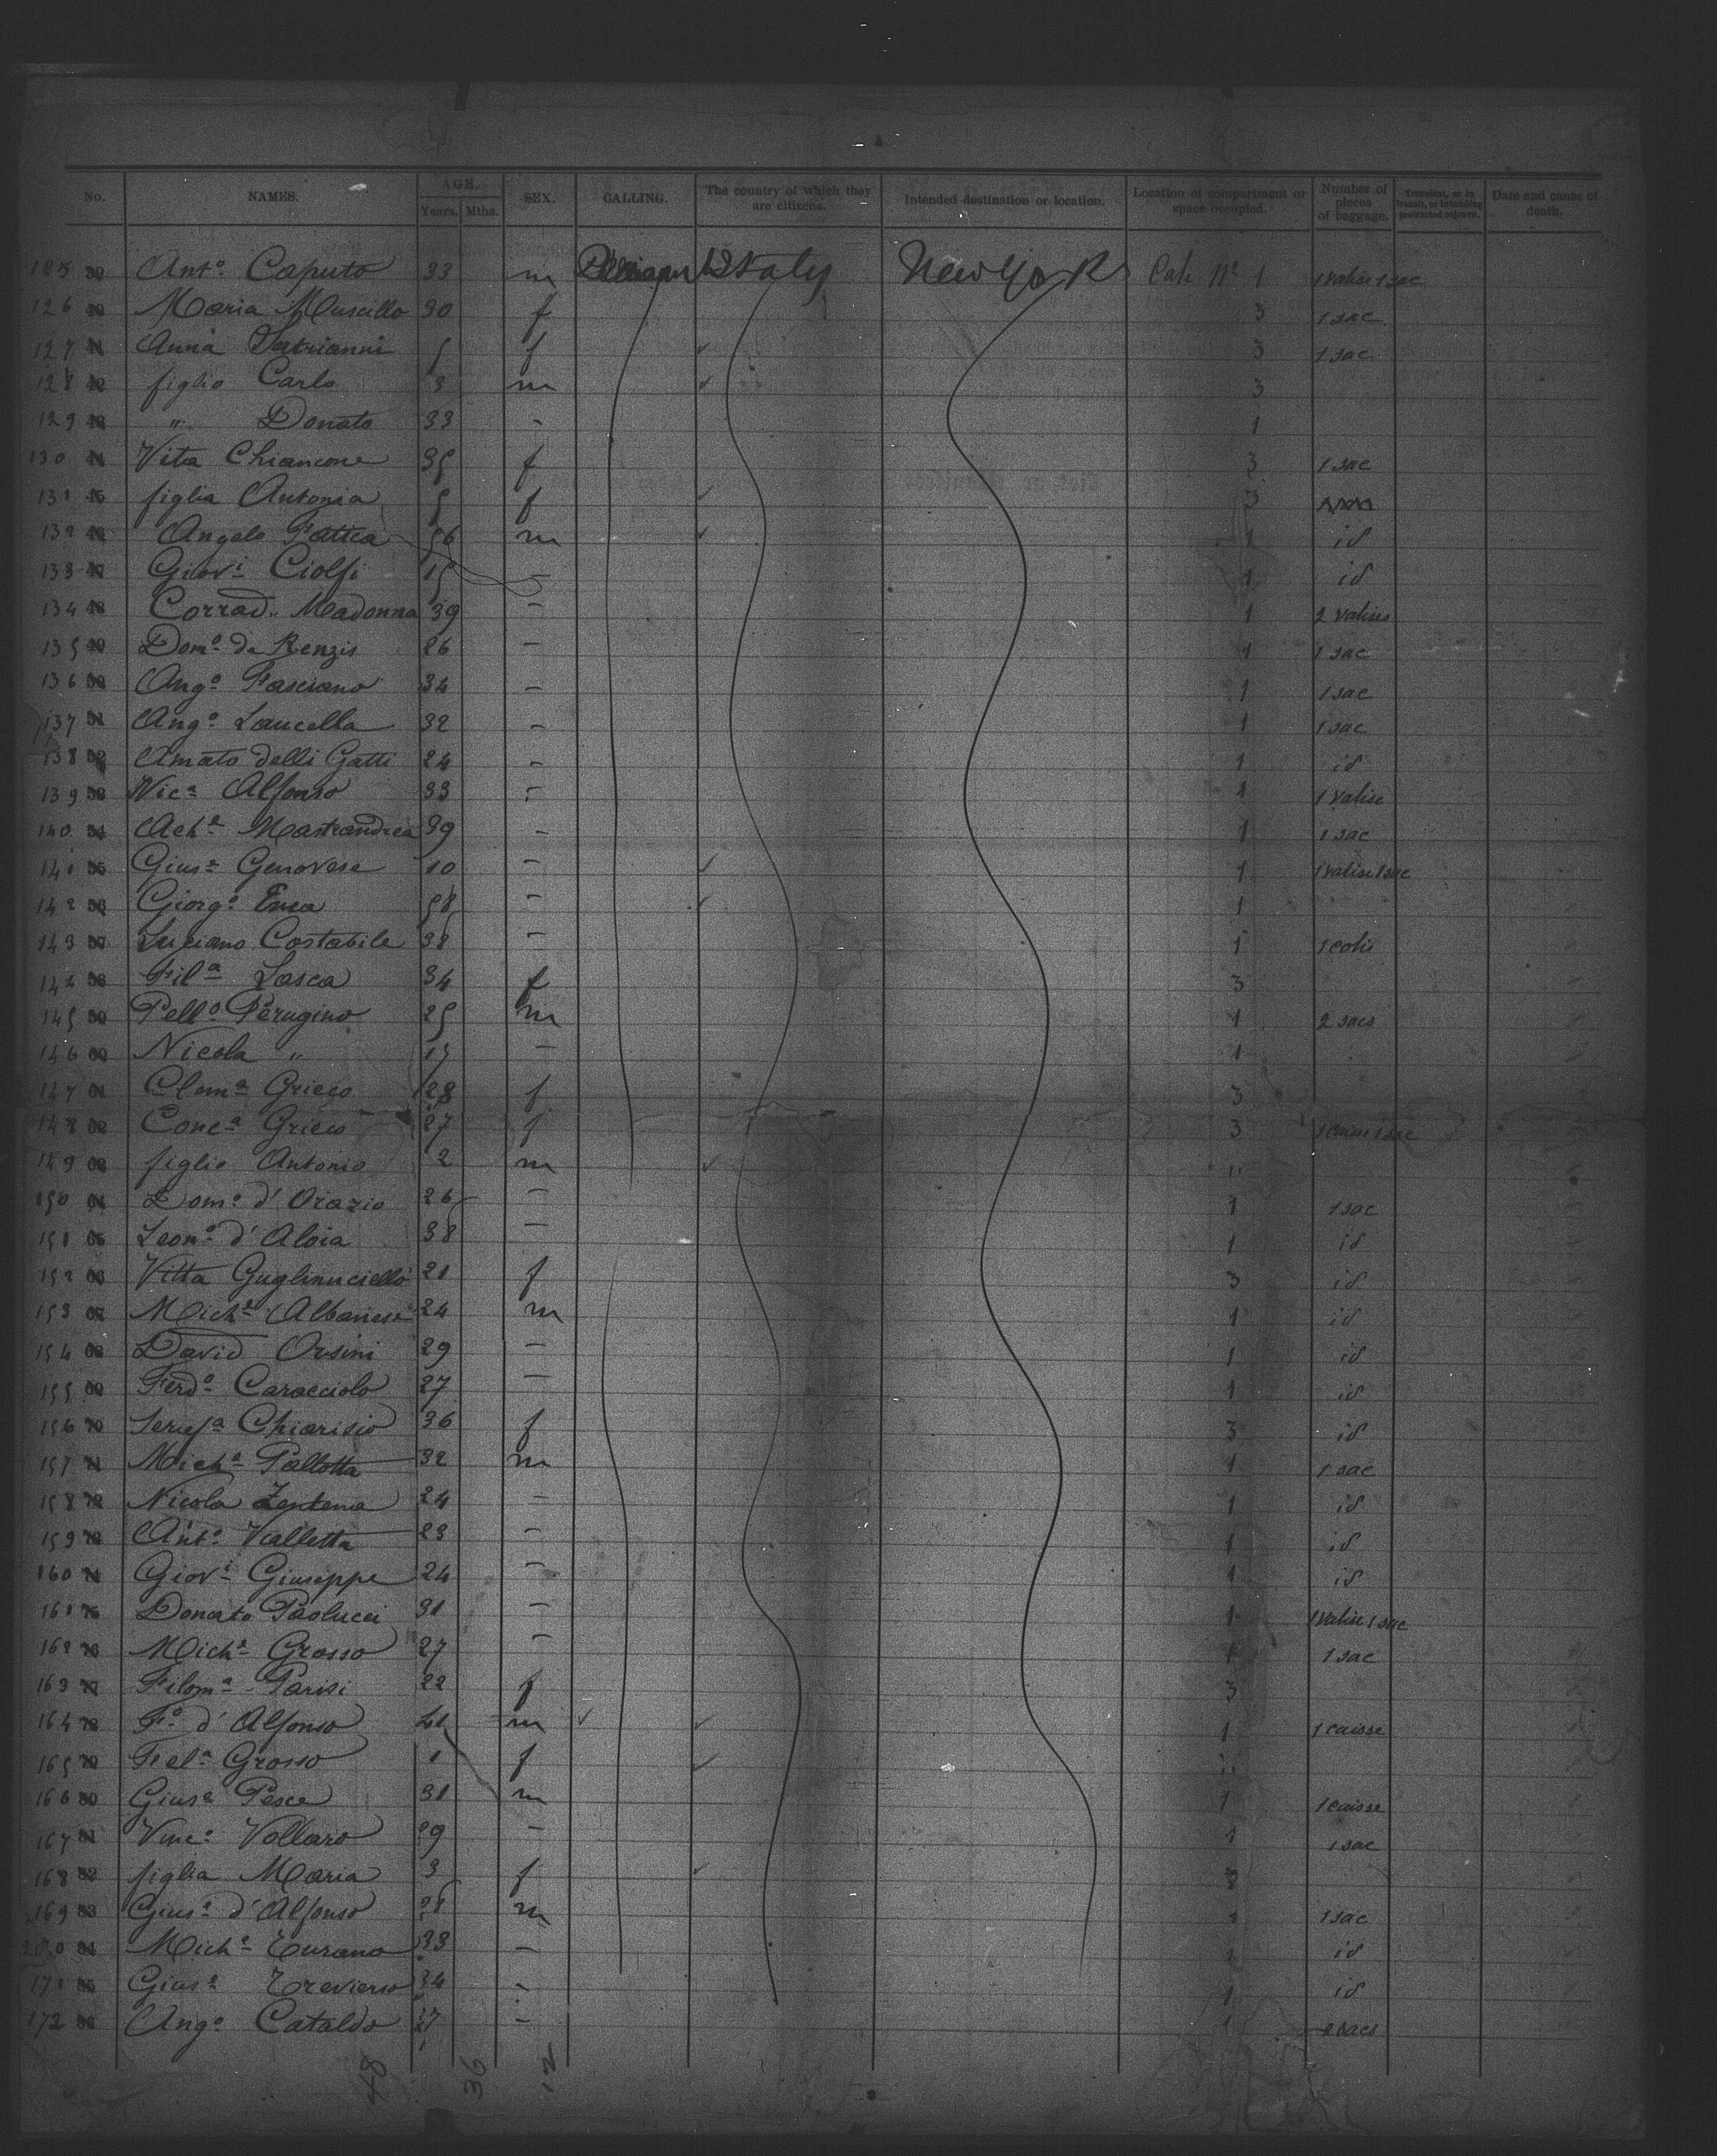 No. NAMES. AGE. Years. Mths. SEX. CALLING. The country of which they are citizens. Intended destination or location. Location of compartment or space occupied. Number of pieces of baggage. Transient, or in transit, or intending protracted sojourn. Date and cause of death.
125 Antº Caputo 33 m Italy New York Cab Nº 1 1 valise 1 sac
126 Maria Muscillo 30 f 3 1 sac
127 Anna f 3 1 sac
128 figlio Carlo 3 m 3
129 " Donato 33 - 1
130 Vita Chiancone 35 f 3 1 sac
131 figlia Antonia 5 f 3
132 Angelo Fattica 56 m 1 id
133 Giovⁱ Ciolfi 15 - 1 id
134 Corrad. Madonna 39 - 1 2 valises
135 Domº de Renzis 26 - 1 1 sac
136 Angº Fasciano 34 - 1 1 sac
137 Angº Laucella 32 - 1 1 sac
138 Amato delli Gatti 24 - 1 id
139 Nicª Alfonso 33 - 1 1 valise
140 Achᵉ Mastrandrea 39 - 1 1 sac
141 Giusᵉ Genovese 10 - 1 1 valise 1 sac
142 Giorgº 58 - 1
143 Luciano Costabile 38 - 1 1 colis
144 Filª Lasca 34 f 3
145 Pellº Perugino 25 m 1 2 sacs
146 Nicola " 15 - 1
147 Clemª Grieco 28 f 3
148 Concª Grieco 27 f 3 1 caisse 1 sac
149 figlio Antonio 2 m "
150 Domº d'Orazio 26 - 1 1 sac
151 Leonº d'Aloia 38 - 1 id
152 Vitta Guglinuciello 21 f 3 id
153 Michᵉ Albanese 24 m 1 id
154 David Orsini 29 - 1 id
155 Ferdº Caracciolo 27 - 1 id
156 Chiarisio 36 f 3 id
157 Michᵉ Pallotta 32 m 1 1 sac
158 Nicola Zentena 24 - 1 id
159 Antº Valletta 23 - 1 id
160 Giovⁱ Giuseppe 24 - 1 id
161 Donato Paolucci 31 - 1 1 valise 1 sac
162 Michᵉ Grosso 27 - 1 1 sac
163 Filomª Parisi 22 f 3
164 Fº d'Alfonso 41 m 1 1 caisse
165 Felª Grosso 1 f "
166 Giusᵉ Pesce 31 m 1 1 caisse
167 Vincº Vollaro 29 - 1 1 sac
168 figlia Maria 3 f 3
169 Giusᵉ d'Alfonso 28 m 1 1 sac
170 Michᵉ Turano 33 - 1 id
171 Giusᵉ 34 - 1 id
172 Angº Cataldo 27 - 1 2 sacs
48 36 12